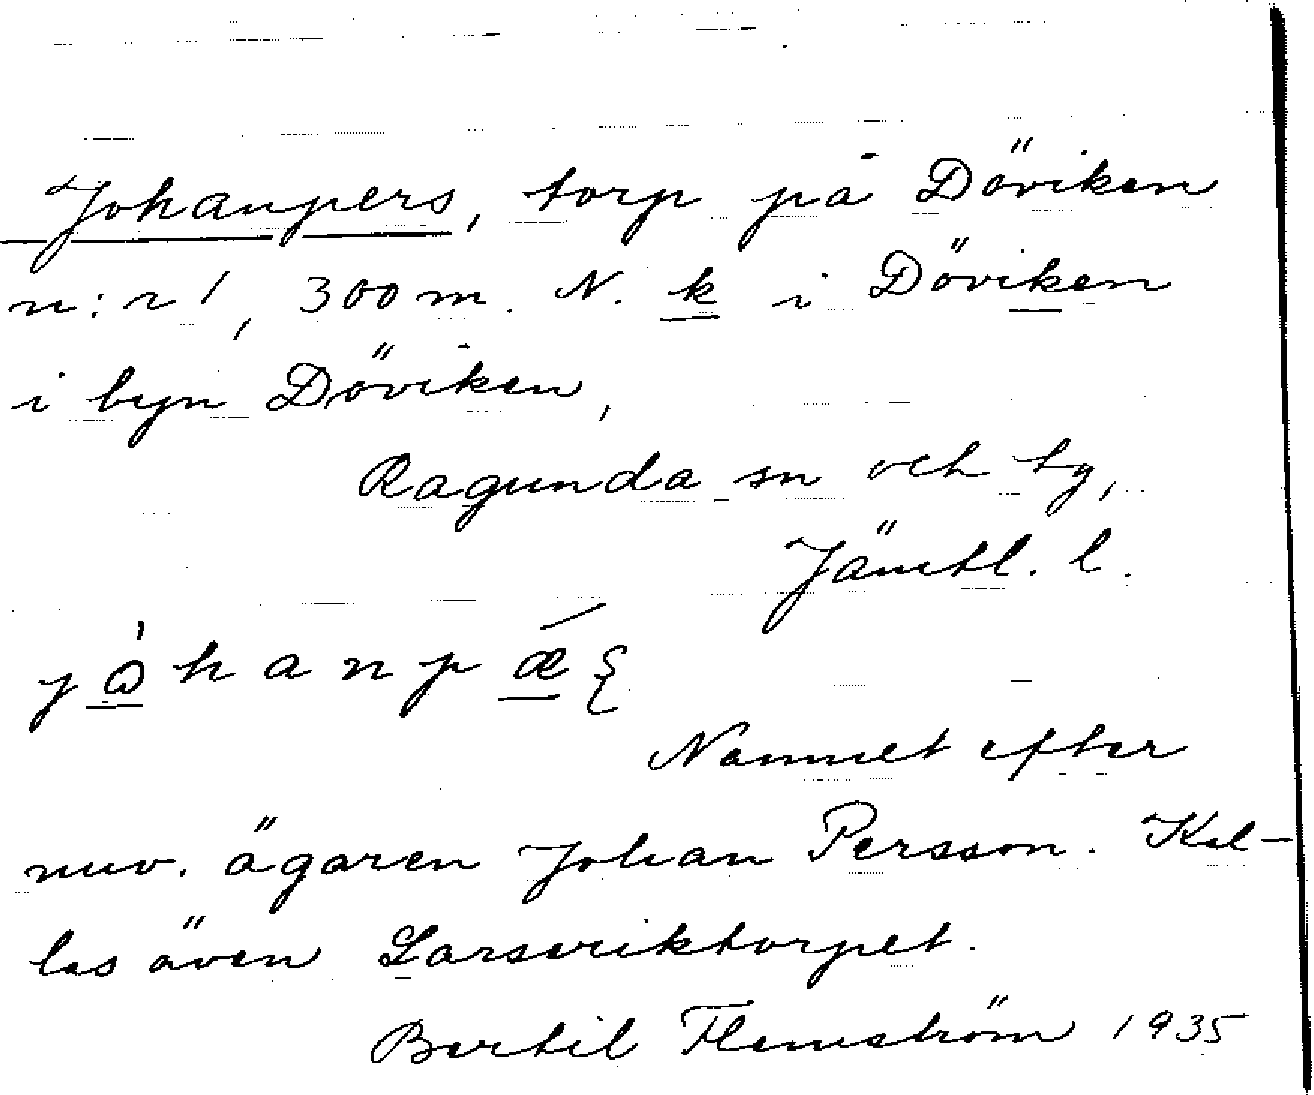 Johanpers, torp på Döviken
n:r 1, 300 m. N. k i Döviken
i byn Döviken,
Ragunda sn och tg,
Jämtl. l.
Namnet efter
nuv. ägaren Johan Persson. Kal-
las även Larseriktorpet.
Bertil Flemström 1935